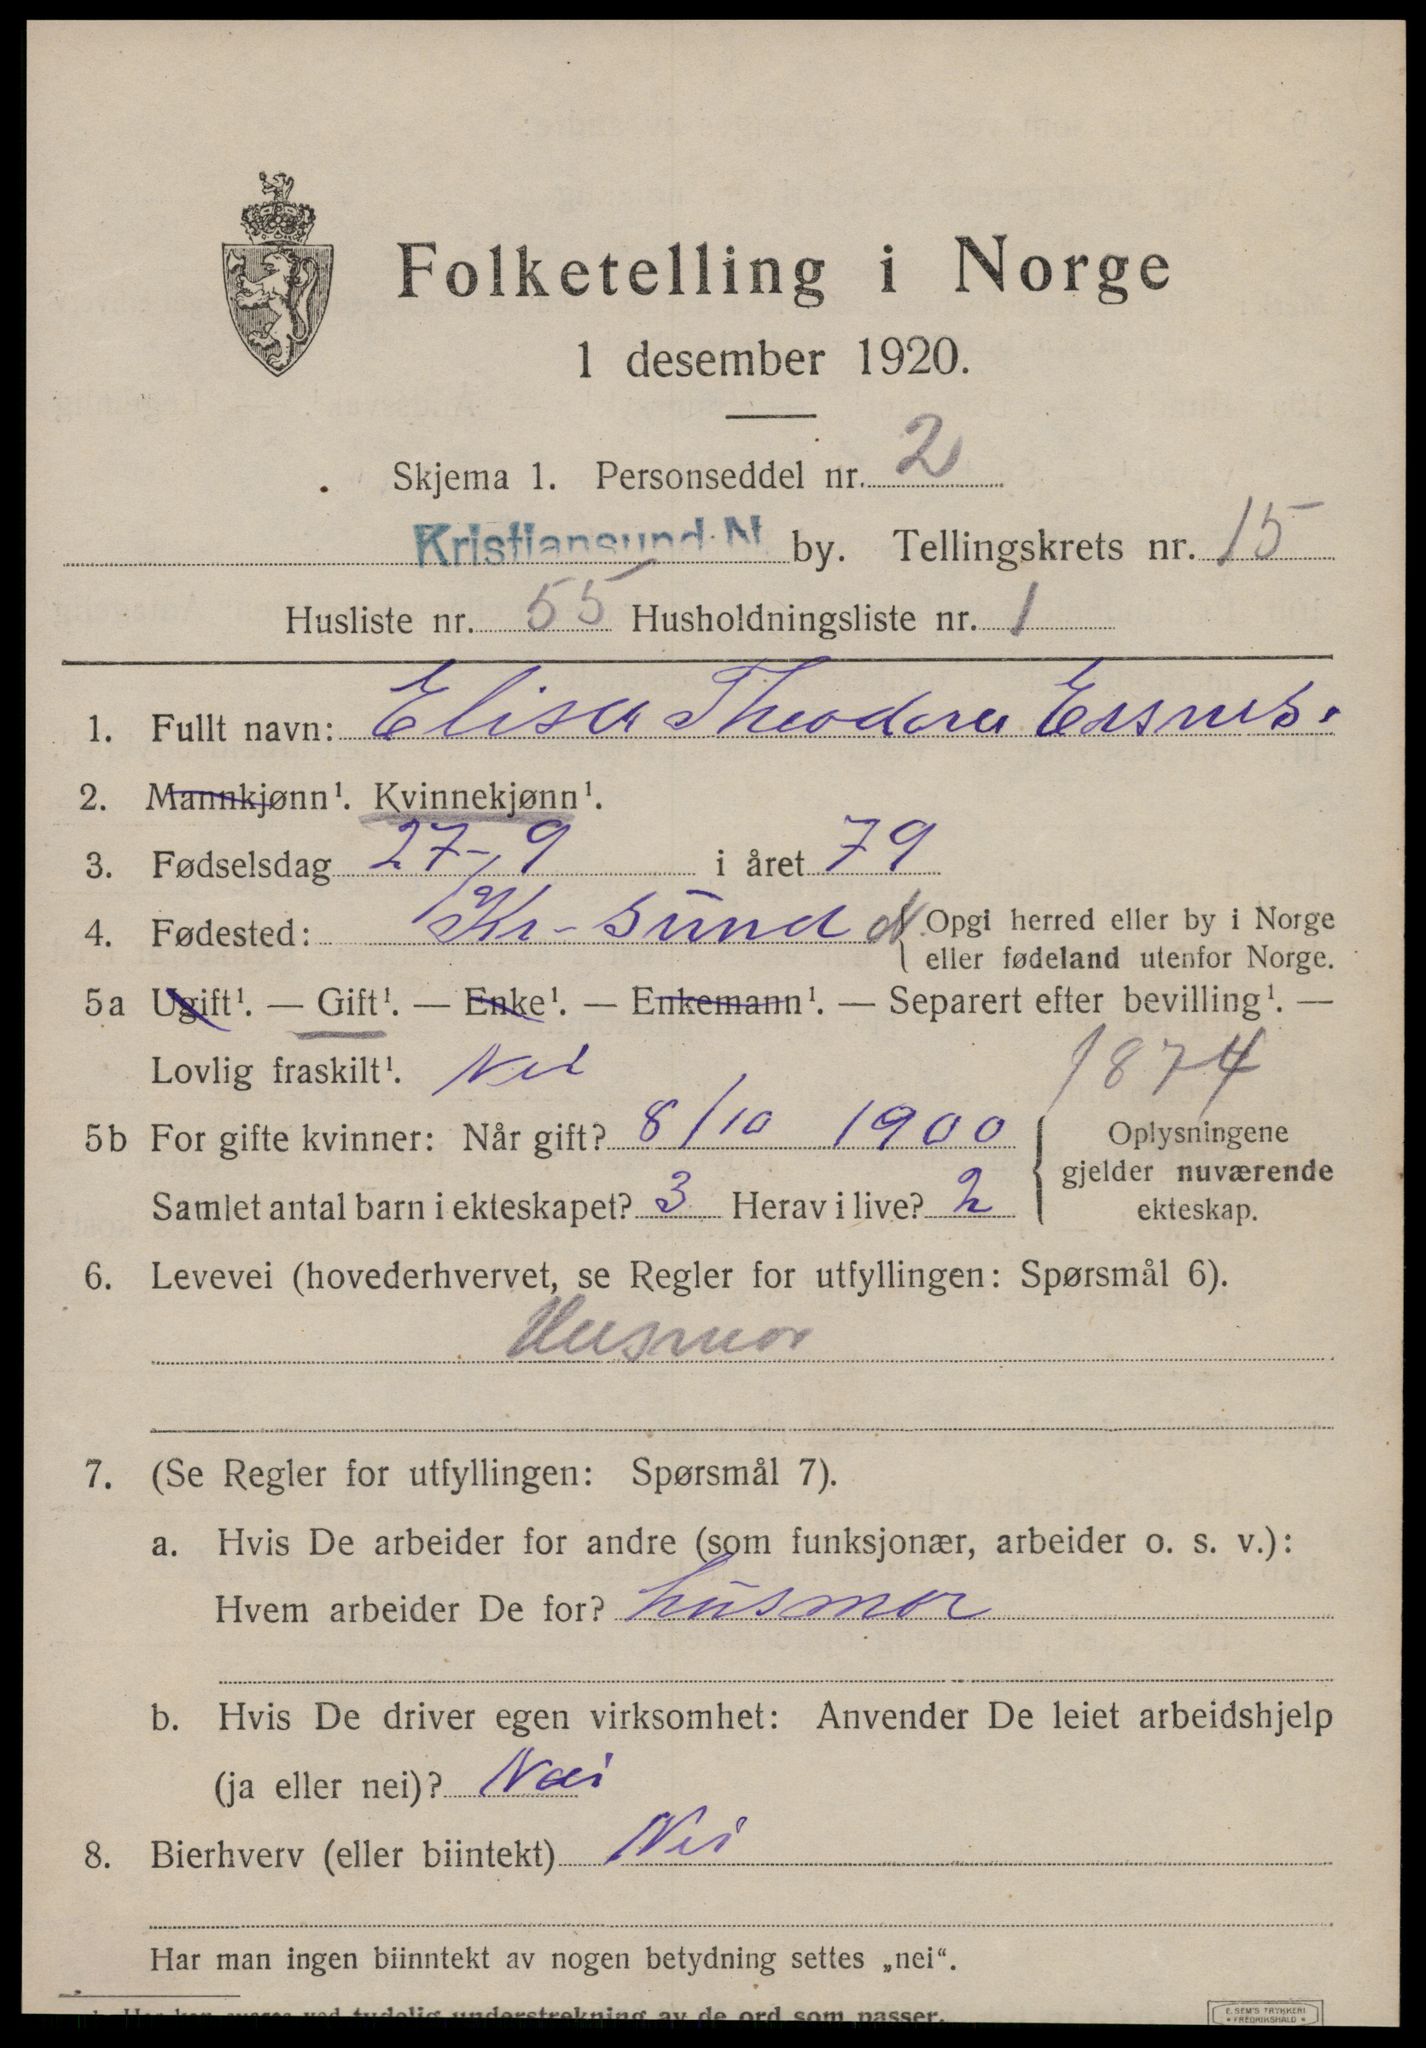 Folketelling i Norge
1 desember 1920.
Skjema 1. Personseddel nr. 2
Kristiansund N. by. Tellingskrets nr. 15
Husliste nr. 55 Husholdningsliste nr. 1
1. Fullt navn: Elisa Theodora
2. Mannkjønn¹. Kvinnekjønn¹.
3. Fødselsdag 27-9 i året 79
4. Fødested: Kr-sund N { Opgi herred eller by i Norge
eller fødeland utenfor Norge.
5a Ugift¹. — Gift¹. — Enke¹. — Enkemann¹. — Separert efter bevilling¹. —
Lovlig fraskilt¹. Nei 1874
5b For gifte kvinner: Når gift? 8/10 1900 { Oplysningene
gjelder nuværende
Samlet antal barn i ekteskapet? 3 Herav i live? 2 ekteskap.
6. Levevei (hovederhvervet, se Regler for utfyllingen: Spørsmål 6).
Husmor
7. (Se Regler for utfyllingen: Spørsmål 7).
a. Hvis De arbeider for andre (som funksjonær, arbeider o. s. v.):
Hvem arbeider De for? husmor
b. Hvis De driver egen virksomhet: Anvender De leiet arbeidshjelp
(ja eller nei)? Nei
8. Bierhverv (eller biintekt) Nei
Har man ingen biinntekt av nogen betydning settes „nei“.
¹ Her kan svares ved tydelig understrekning av de ord som passer.
E. SEM'S TRYKKERI
FREDRIKSHALD